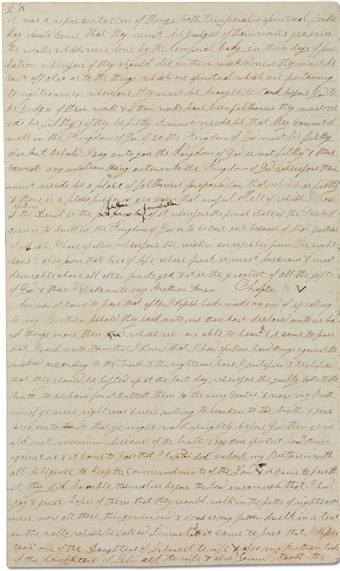 it was a representation of things both temporal & spiritual for the
day should come that they must be judged of their works yea even
the works which were done by the temporal body in their days of pro
bation wherefore if they should die in their wickedness they must be
cast off also as to the things which are spiritual which are pertaining
to righteousness wherefore they must be brought to stand before God to
be judged of their works & if their works have been filthiness they must ne
eds be filthy & if they be filthy it must needs be that they cannot d
well in the Kingdom of God if so the Kingdom of God must be filthy
also but behold I say unto you the Kingdom of God is not filthy & there
cannot any unclean thing enter into the Kingdom of God wherefore there
must needs be a place of filthiness prepared for that which is filthy
& there is a place prepared yea even that awful Hell of which I have
the Devil is the foundation of it wherefore the final state of the Souls of
men is to dwell in the Kingdom of God or to be cast out because of that justice
of which I have spoken wherefore the wicked are rejected from the right
eous & also from that tree of life whose fruit is most precious & most
desireable above all other fruits yea & it is the greatest of all the gifts
of God & thus I spake unto my Brethren Amen Chapter V
And now it came to pass that after I Nephi had made an end of speaking
to my Brethren behold they said unto me thou hast declared unto us har
d things more than which we are able to bear & it came to pass
that I said unto them that I knew that I had spoken hard things against the
wicked according to the truth & the righteous have I justified & testified
that they should be lifted up at the last day wherefore the guilty taketh the
truth to be hard for it cutteth them to the very center & now my Breth
ren if ye were righteous & were willing to hearken to the truth & give
heed unto it that ye might walk uprightly before God then ye wo
uld not murmur because of the truth & say thou speakest hard things
against us & it came to pass that I Nephi did exhort my Brethren with
all diligence to keep the commandments of the Lord & it came to pass th
at they did humble themselves before the Lord insomuch that I had
joy & great hopes of them that they would walk in the paths of righteous
ness now all these things were said & done as my father dwelt in a tent
in the valley which he called Lemuel & it came to pass that I Nephi
took one of the Daughters of Ishmael to wife & also my Brethren took
of the daughters of Ishmael to wife & also Zoram took the